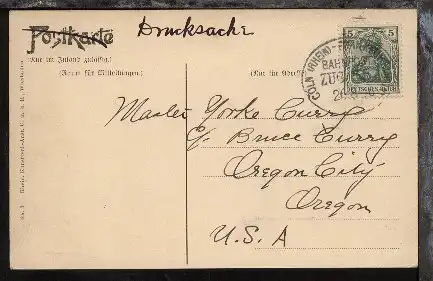 Postkarte
Drucksache
(Nur im Inland zulässig.)
(Raum für Mitteilungen.)
(Nur für Adresse)
5 5
DEUTSCHES REICH
CÖLN (RHEIN)
BAHNPOST
ZUG
Master Yorke Curry
c/o Bruce Curry
Oregon City
Oregon
U.S.A